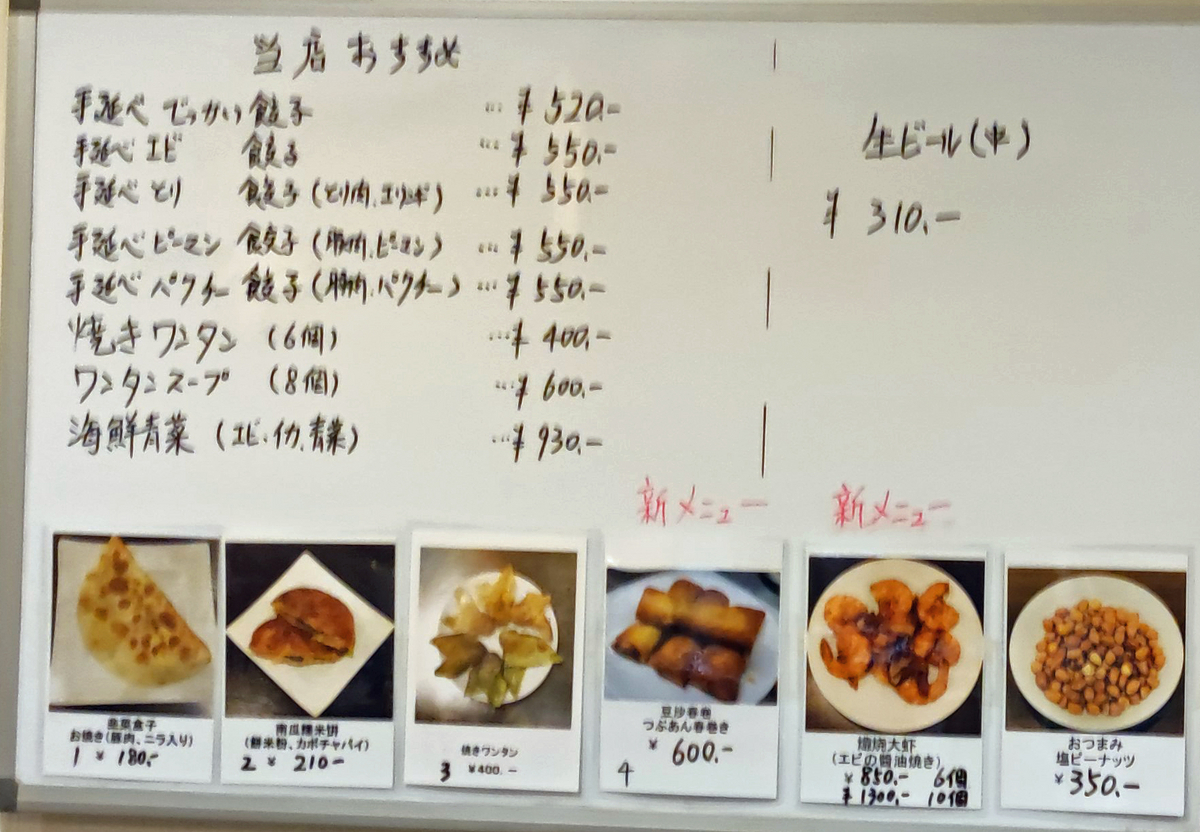 当店おすすめ
手延べ でっかい餃子 … ¥ 520.-
手延べ エビ 餃子 … ¥ 550.-
手延べ とり 餃子 (とり肉、エリンギ) … ¥ 550.-
手延べ ピーマン 餃子 (豚肉、ピーマン) … ¥ 550.-
手延べ パクチー 餃子 (豚肉、パクチー) … ¥ 550.-
焼きワンタン (6個) … ¥ 400.-
ワンタンスープ (8個) … ¥ 600.-
海鮮青菜 (エビ・イカ、青菜) … ¥ 930.-
生ビール(中)
¥ 310.-
新メニュー
新メニュー
韮菜合子
お焼き(豚肉、ニラ入り)
1 ¥ 180.-
南瓜糯米餅
(餅米粉、カボチャパイ)
2 ¥ 210-
焼きワンタン
3 ¥400.-
豆沙春巻
つぶあん春巻き
¥ 600.-
4
大虾
(エビの醬油焼き)
¥ 850.- 6個
¥ 1300.- 10個
おつまみ
塩ピーナッツ
¥350.-